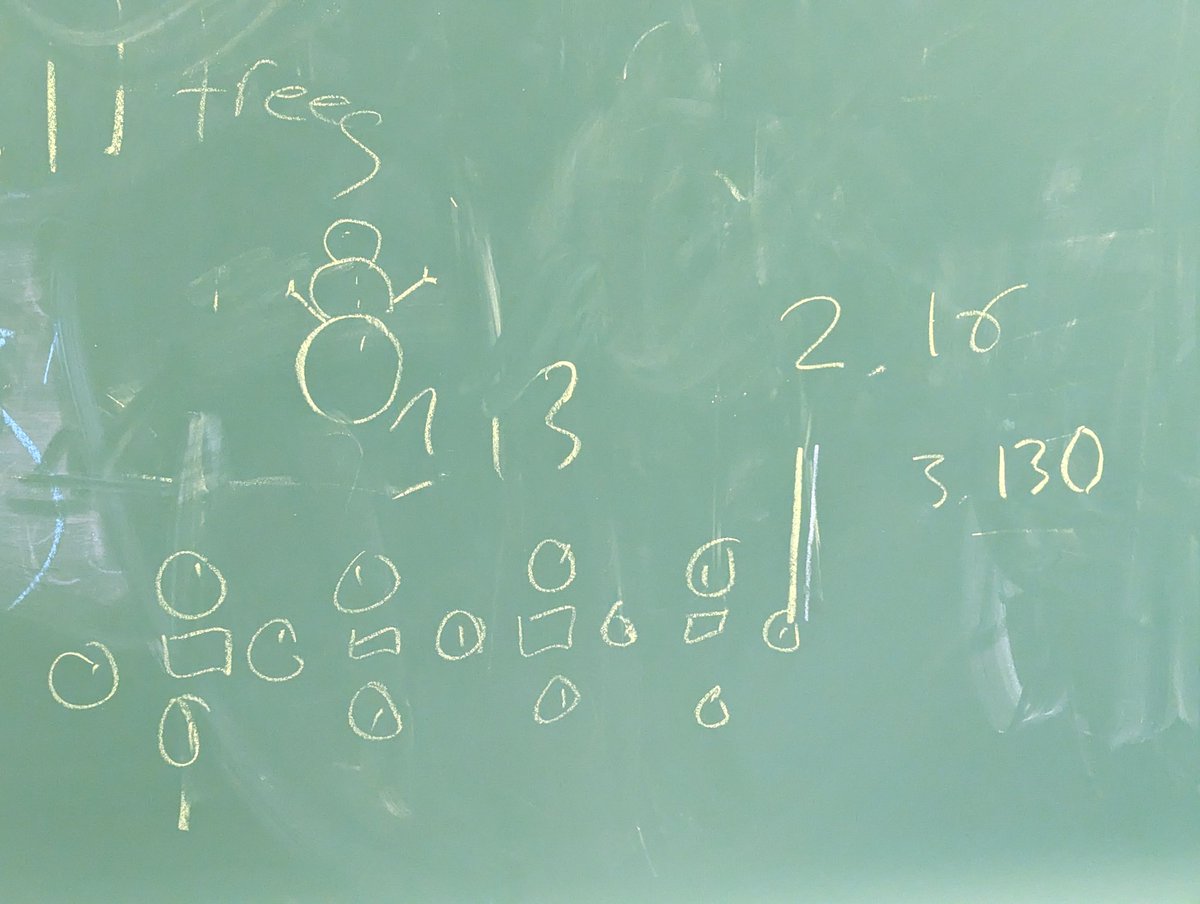 11 trees
1 13
2. 18
3. 130